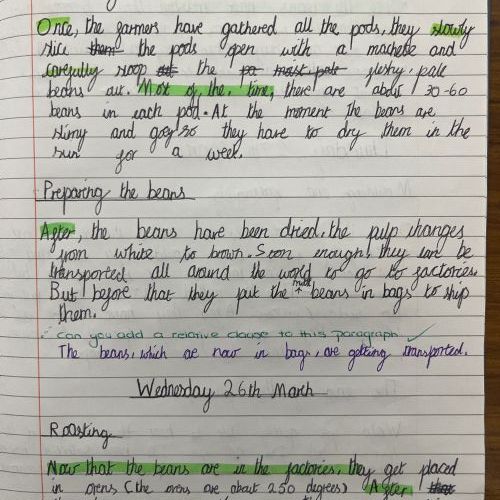 Once, the garmers have gathered all the pods, they slowly
slice them the pods open with a machete and
carefully scoop out the pa most pale fleshy pale
beans out. Most of the time, there are about 30-60
beans in each pod. At the moment the beans are
slimy and gooy so they have to dry them in the
sun for a week.
Preparing the beans
After, the beans have been dried, the pulp changes
from white to brown. Soon enough, they can be
transported all around the world to go to factories.
But before that they put the beans in bags to ship
them.
can you add a relative clause to this paragraph ✓
The beans, which are now in bags, are getting transported.
Wednesday 26th March
Roasting
Now that the beans are in the factories, they get placed
in ovens (the ovens are about 250 degrees) After